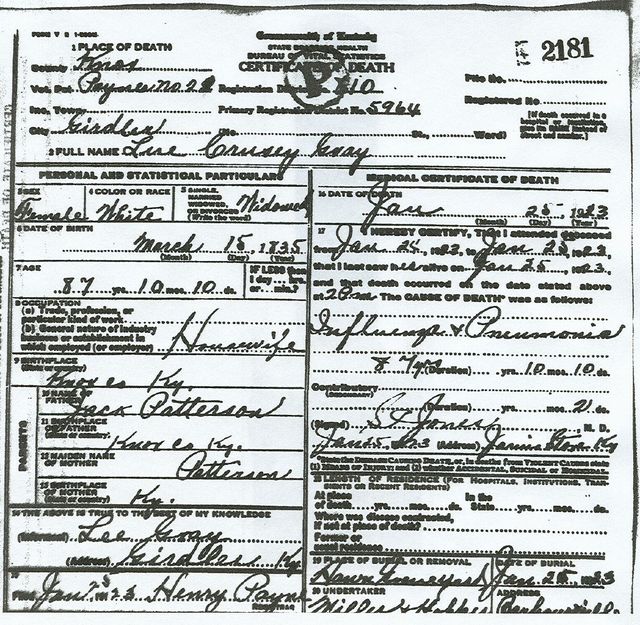 Commonwealth of Kentucky
STATE BOARD OF HEALTH
BUREAU OF VITAL STATISTICS
CERTIFICATE OF DEATH
2181
1 PLACE OF DEATH
County Knox
Vot. Pct. Payne No. 22 Registration District No. 710
Inc. Town Primary Registration District No. 5964
City Girdler (No. St., Ward)
File No.
Registered No.
[If death occurred in a hospital or institution, give its NAME instead of street and number.]
2 FULL NAME Crusey Gray
PERSONAL AND STATISTICAL PARTICULARS
3 SEX Female
4 COLOR OR RACE White
5 SINGLE, MARRIED, WIDOWED, OR DIVORCED (Write the word) Widowed
6 DATE OF BIRTH
March 15, 1835
(Month) (Day) (Year)
7 AGE
87 yrs. 10 mos. 10 ds.
IF LESS than 1 day... hrs. or... min.?
8 OCCUPATION
(a) Trade, profession, or particular kind of work
(b) General nature of industry business or establishment in which employed (or employer) Housewife
9 BIRTHPLACE
(State or country) Knox co Ky.
PARENTS
10 NAME OF FATHER Jack Patterson
11 BIRTHPLACE OF FATHER (State or country) Knox co Ky.
12 MAIDEN NAME OF MOTHER Patterson
13 BIRTHPLACE OF MOTHER (State or country) Ky.
14 THE ABOVE IS TRUE TO THE BEST OF MY KNOWLEDGE
(Informant) Lee Gray
(Address) Girdler Ky
15
Filed Jan 1923 Henry Payne
REGISTRAR
MEDICAL CERTIFICATE OF DEATH
16 DATE OF DEATH
Jan 25 1923
(Month) (Day) (Year)
17 I HEREBY CERTIFY, That I attended deceased
from Jan 24, 1923, to Jan 25, 1923,
that I last saw alive on Jan 25, 1923,
and that death occurred on the date stated above
at 2 m The CAUSE OF DEATH was as follows:
Influenza & Pneumonia
87 yrs (Duration) yrs. 10 mos. 10 ds.
Contributory
(SECONDARY)
(Duration) yrs. mos. 2 ds.
(Signed) Jones, M. D.
Jan 25, 1923 (Address)
State the DISEASE CAUSING DEATH, or, in deaths from VIOLENT CAUSES state
(1) MEANS OF INJURY; and (2) whether ACCIDENTAL, SUICIDAL or HOMICIDAL
18 LENGTH OF RESIDENCE (FOR HOSPITALS, INSTITUTIONS, TRANSIENTS OR RECENT RESIDENTS)
At place of death yrs. mos. ds. In the State yrs. mos. ds.
Where was disease contracted,
If not at place of death?
Former or usual residence
19 PLACE OF BURIAL OR REMOVAL
DATE OF BURIAL
Graveyard Jan 26 1923
20 UNDERTAKER
ADDRESS